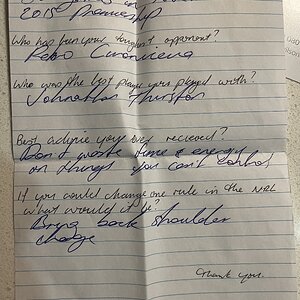 2015 Premiership
Who has been your toughest opponent?
Who was the best player you played with?
Johnathan Thurston
Best advice you ever recieved?
Don't waste time & energy
on things you can't control
If you could change one rule in the NRL
what would it be?
Bring back shoulder
charge
Thank you.